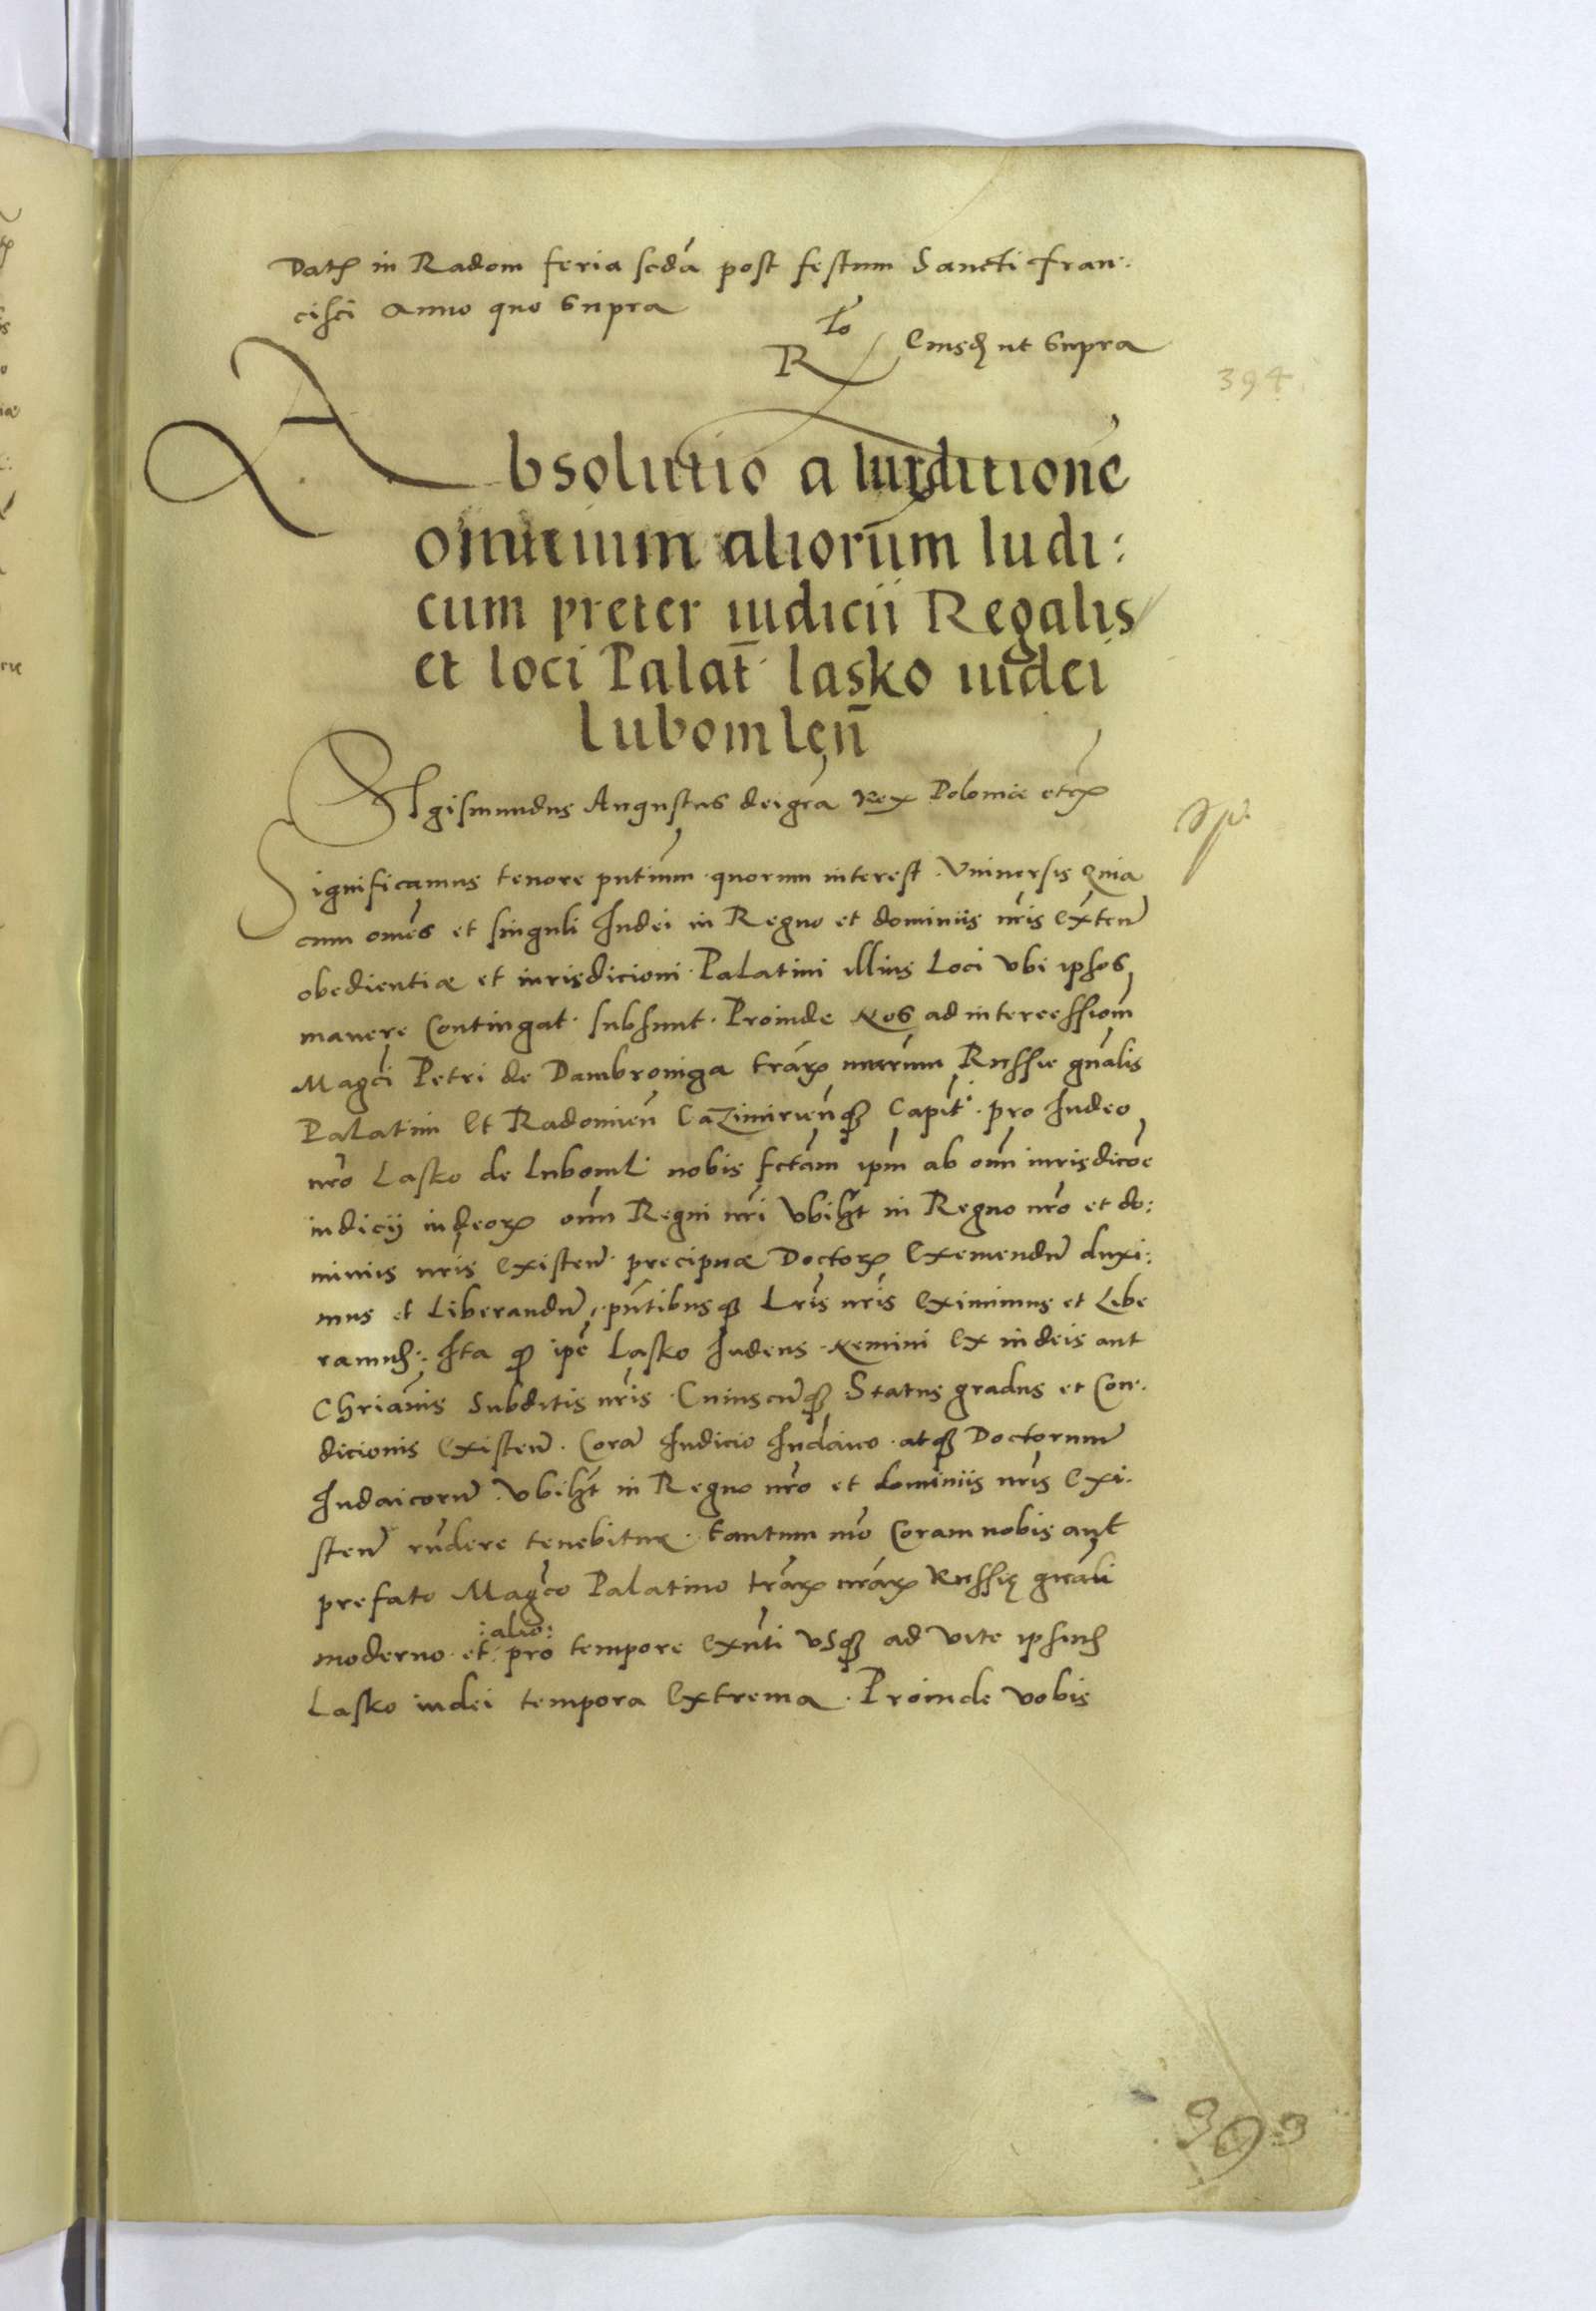 Datꝫ in Radom feria scdá post festum Sancti Fran:
cisci Anno quo supra
R to Eiusdꝫ ut supra
394
Absolutio a Iurditione
omnium aliorum Iudi:
cum preter iudicii Regalis
et loci Palat̄ lasko iudei
lubomleñ
SIgismundus Augustus dei gra Rex Poloniæ etcꝫ
Significamus tenore pntium quorum interest. Vniuersis Quia
cum omes et singuli Iudei in Regno et dominiis nris exteñ
obedientiæ et iurisdicioni Palatini illius Loci vbi ipsos
manere Contingat. subsunt. Proinde Nos ad intercessiom
Magci Petri de Dambroniga trarꝝ nrarum Russie gnalis
Palatini Et Radomieñ Cazimirieñqꝫ Capit. pro Iudeo
nro Lasko de luboml nobis fctam ipm ab omni iurisdicōe
iudicij iudeorꝝ omn Regni nri vbilꝫt in Regno nro et do:
miniis nris Existeñ precipuæ Doctorꝝ Exemendū duxi:
mus et Liberandū, pntibusqꝫ Lris nris Eximimus et Libe
ramusꝫ. Ita qꝫ ipē Lasko Iudeus. Nemini Ex iudeis aut
Chrianis Subditis nris Cuiuscūqꝫ Status gradus et Con:
dicionis Existeñ. Corā Iudicio Iudaico. atqꝫ Doctorum
Iudaicorū. vbilꝫt in Regno nro et dominiis nris Exi:
steñ rndere tenebitur. tantum mō Coram nobis aut
prefato Magco Palatino trarꝝ nrarꝝ Russię gnali
moderno et :alio: pro tempore Exnti vsqꝫ ad vite ipsiusꝫ
Lasko iudei tempora Extrema. Proinde vobis
393